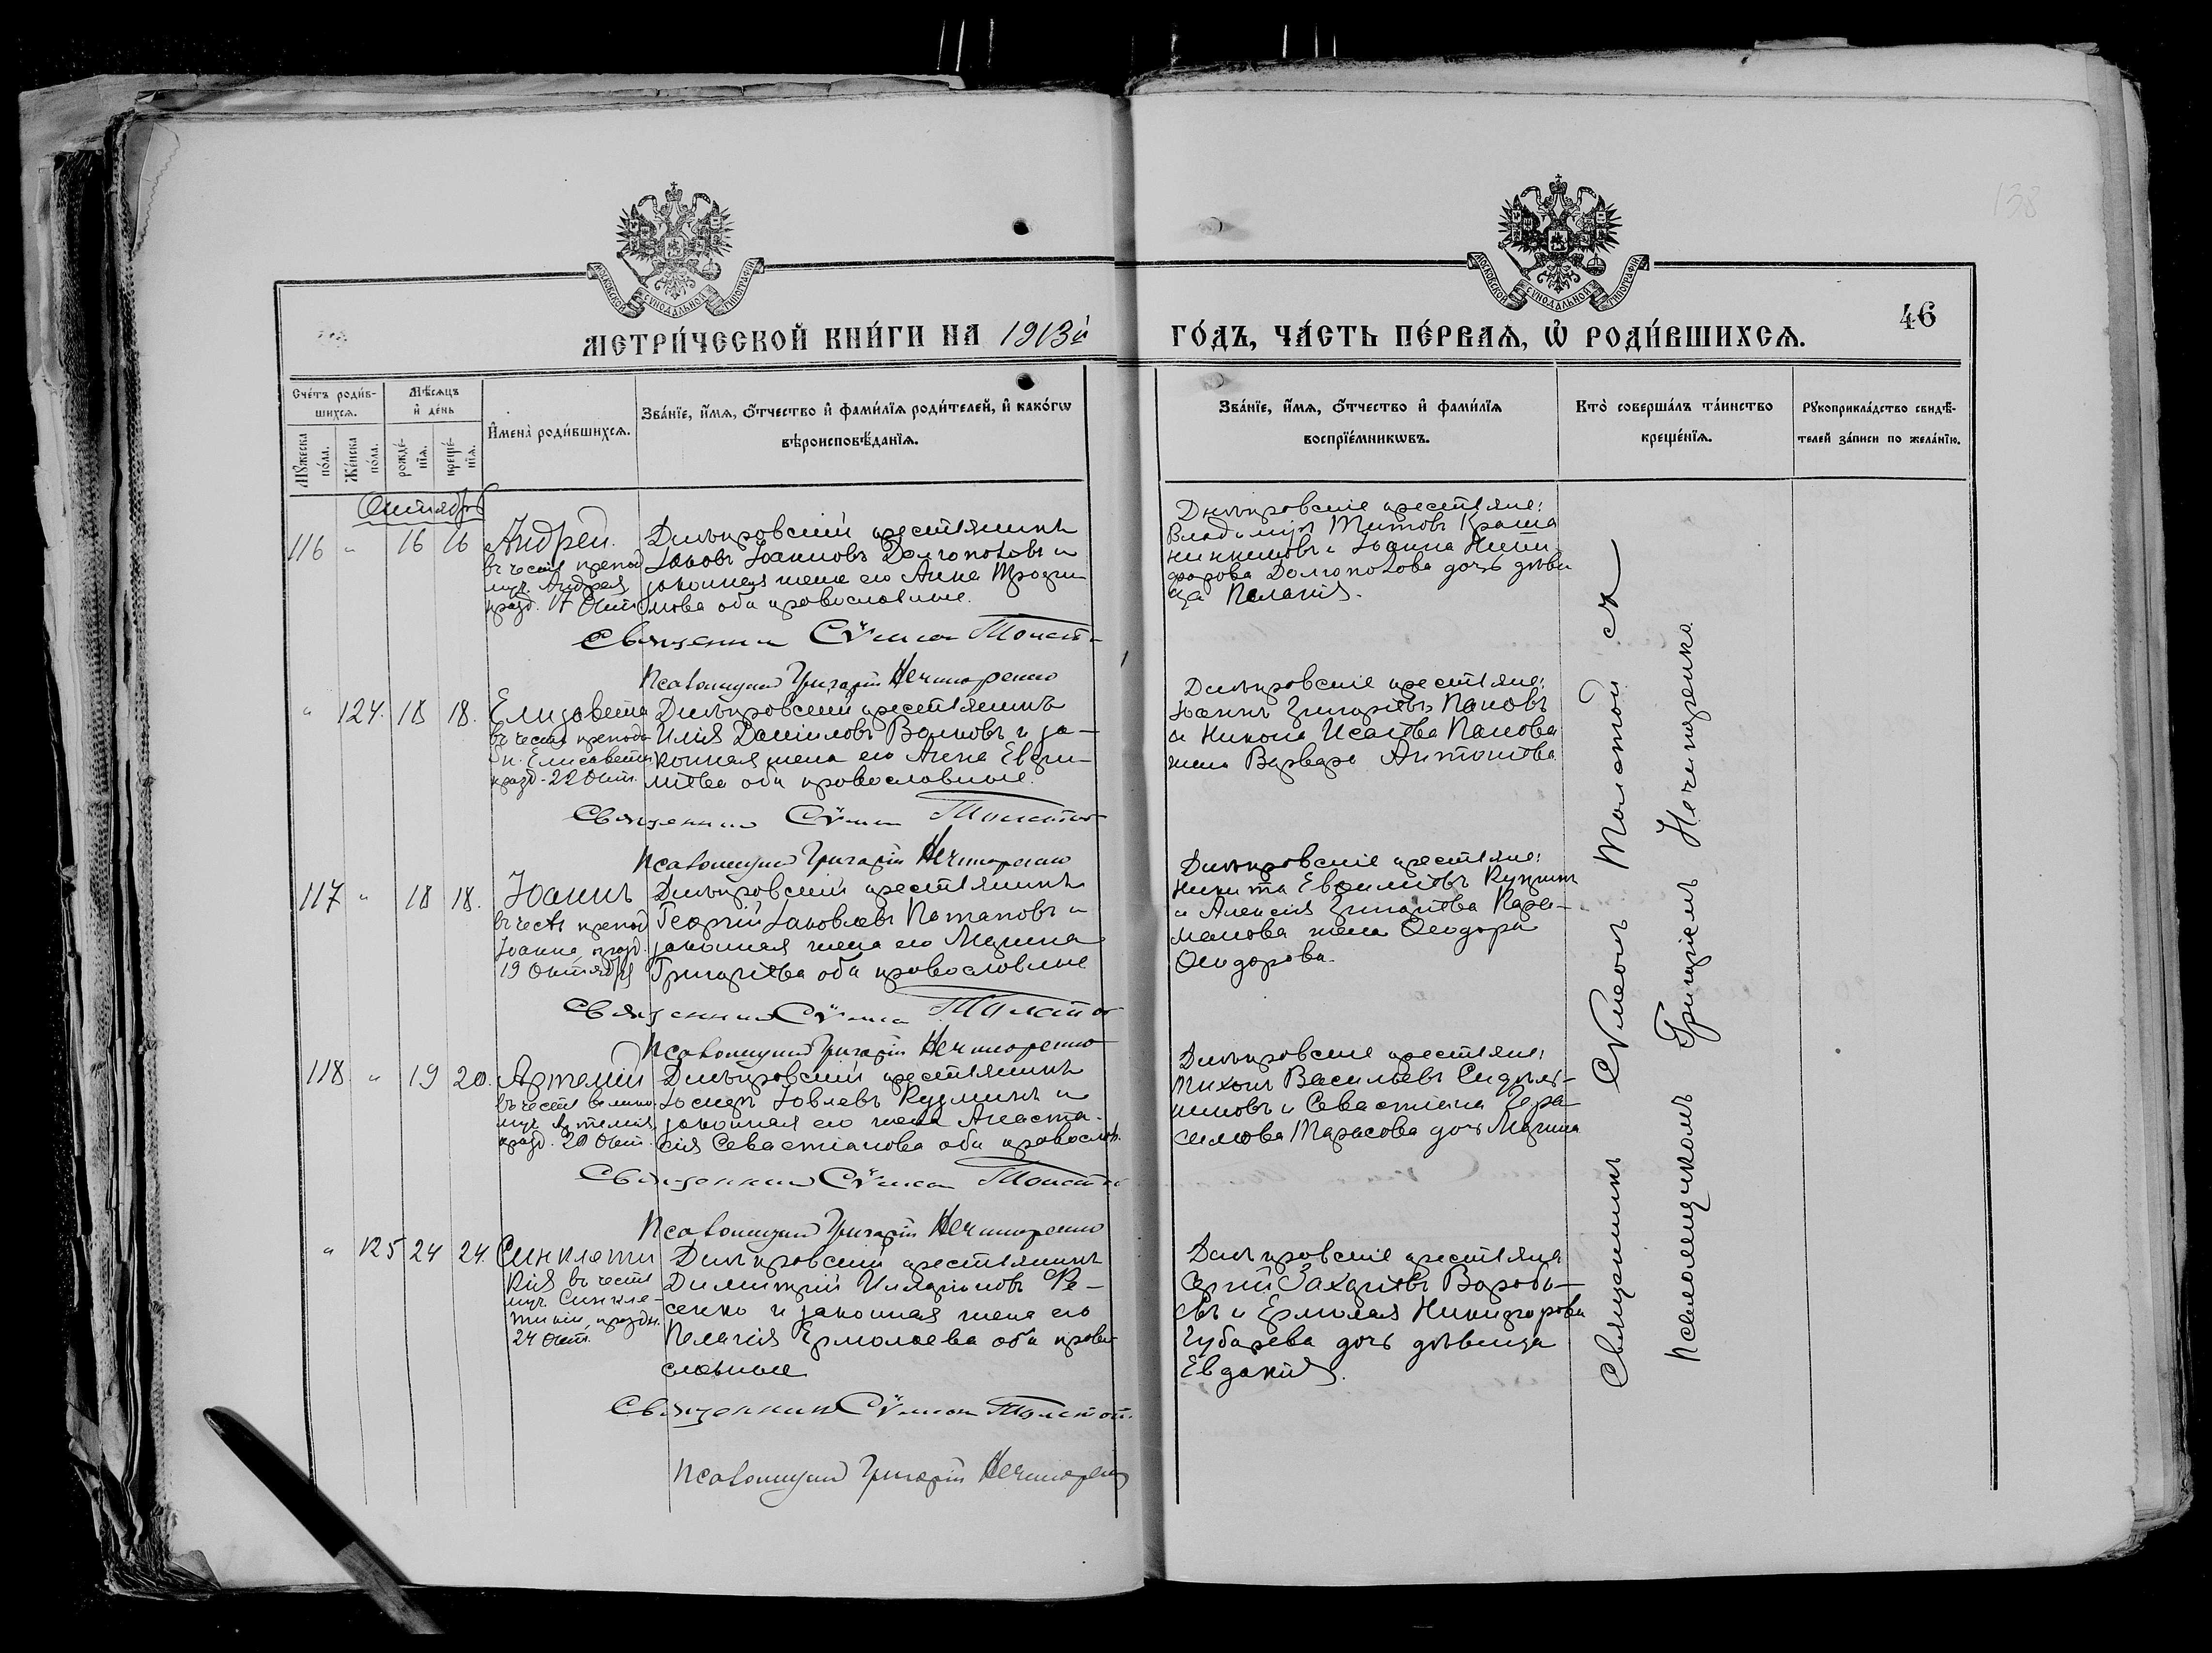 138
МОСКОВСКОЙ СѴНОДАЛЬНОЙ ТИПОГРАФІИ
МОСКОВСКОЙ СѴНОДАЛЬНОЙ ТИПОГРАФІИ
МЕТРИ́ЧЕСКОЙ КНИ́ГИ НА 1913й
ГО́ДЪ, ЧА́СТЬ ПЕ́РВАѦ, Ѡ҆ РОДИ́ВШИХСѦ.
46
Сче́тъ роди́в-
шихсѧ.
Мѣ́сѧцъ
и҆ де́нь
Мꙋ́жеска
по́ла.
Же́нска
по́ла.
рожде́-
нїѧ.
креще́-
нїѧ.
И҆мена̀ роди́вшихсѧ.
Зва́нїе, и҆́мѧ, ѻ҆́тчество и҆ фами́лїѧ роди́телей, и҆ како́гѡ
вѣроисповѣ́данїѧ.
Зва́нїе, и҆́мѧ, ѻ҆́тчество и҆ фами́лїѧ
воспрїе́мникѡвъ.
Кто̀ соверша́лъ та́инство
креще́нїѧ.
Рꙋкоприкла́дство свидѣ́-
телей за́писи по жела́нїю.
Октябрь
116 " 16 16
Андрей
въ честь препод
муч. Андрея
празд. 17 Окт.
Днѣпровскій крестьянинъ
Іаковъ Іоанновъ Долгополовъ и
законная жена его Анна Трофи
мова оба православные.
Священник Сѵмеон Толстой
Псаломщик Григорій Нечипоренко
Днѣпровскіе крестьяне:
Владиміръ Титовъ Краша
нинниковъ и Іоанна Ники
форова Долгополова дочь дѣви
ца Пелагія.
" 124. 18 18.
Елизавета
въ честь препод
Елисаветы
празд. 22 Окт.
Днѣпровскій крестьянинъ
Илія Даніиловъ Волковъ и за-
конная жена его Анна Евфи-
міева оба православные.
Священник Сѵмеон Толстой
Псаломщик Григорій Нечипоренко
Днѣпровскіе крестьяне:
Іоаннъ Григоріевъ Пановъ
и Никона Исаіева Панова
жена Варвара Антоніева
117 " 18 18.
Іоаннъ
въ честь препод
Іоанна, празд.
19 Октября
Днѣпровскій крестьянинъ
Георгій Іаковлевъ Потаповъ и
законная жена его Марина
Григоріева оба православные
Священник Сѵмеон Толстой
Псаломщик Григорій Нечипоренко
Днѣпровскіе крестьяне:
Никита Евфиміевъ
и Алексія Григоріева Кара-
манова жена Ѳеодора
Ѳеодорова.
118 " 19 20.
Артемій
въ честь велико
муч. Артемія
празд. 20 Окт.
Днѣпровскій крестьянинъ
Іосифъ Іовлевъ Кузминъ и
законная его жена Анаста-
сія Севастіанова оба православн.
Священник Сѵмеон Толстой
Псаломщик Григорій Нечипоренко
Днѣпровскіе крестьяне:
Тихонъ Васильевъ
и Севастіана Гера
симова Тарасова дочь Марина
" 125 24 24.
Синклити
кія въ честь
муч. Синкле-
тикіи, праздн.
24 Окт.
Днѣпровскій крестьянинъ
Димитрій Иларіоновъ Фе-
сенко и законная жена его
Пелагія Ермолаева оба право
славные
Священник Сѵмеон Толстой
Псаломщик Григорій Нечипоренко
Днѣпровскіе крестьяне
Сергій Захаріевъ Воробь-
евъ и Ермолая Никифорова
Губарева дочь дѣвица
Евдокія.
Священникъ Сѵмеонъ Толстой съ
Псаломщикомъ Григоріемъ Нечипоренко.